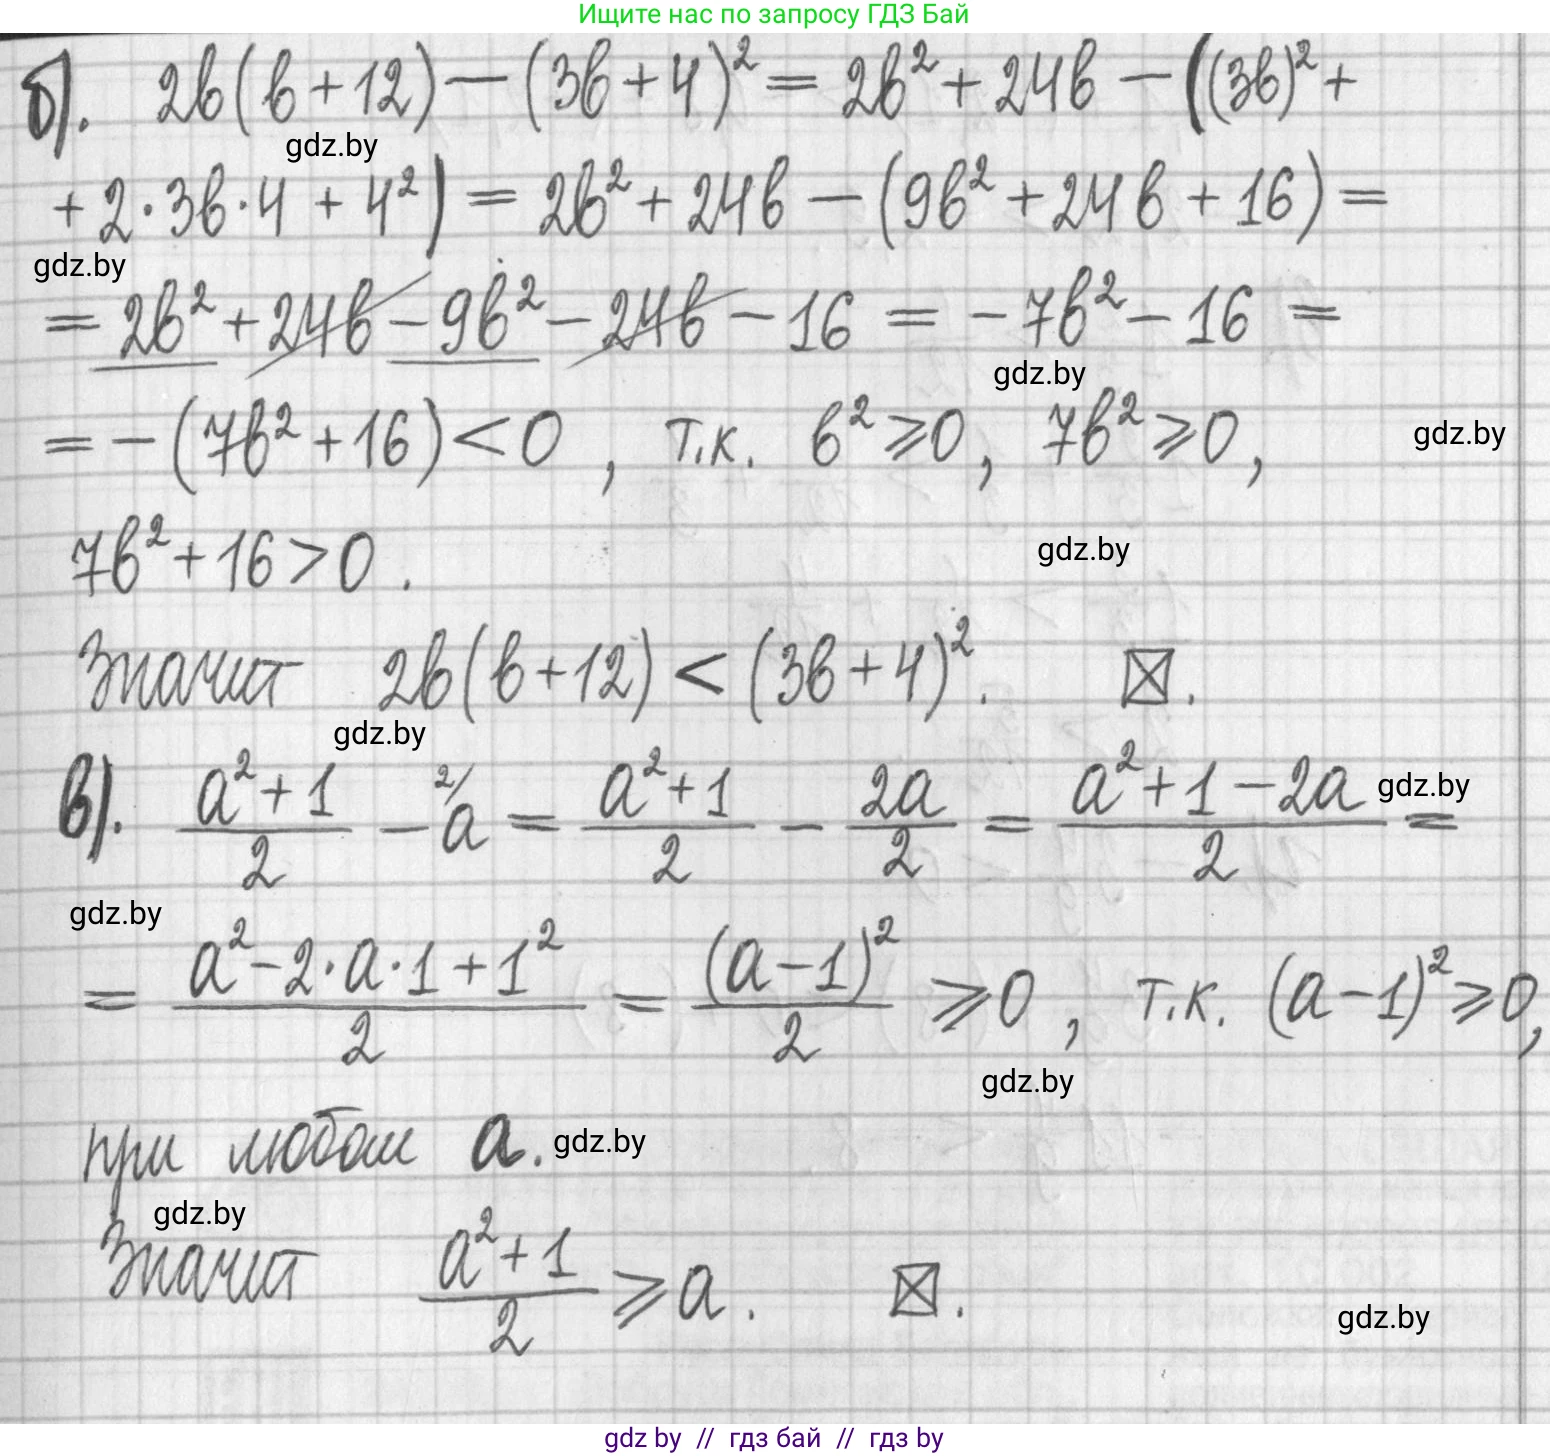 Ищите нас по запросу ГДЗ Бай
б). 2b(b+12)-(3b+4)² = 2b²+24b-((3b)²+
gdz.by
+2·3b·4+4²) = 2b²+24b-(9b²+24b+16)=
gdz.by
= 2b²+24b-9b²-24b-16 = -7b²-16 =
gdz.by
= -(7b²+16)<0, т.к. b²⩾0, 7b²⩾0,
gdz.by
7b²+16>0.
gdz.by
Значит 2b(b+12)<(3b+4)². ☒.
gdz.by
в). (a²+1)/2 - ²/a = (a²+1)/2 - 2a/2 = (a²+1-2a)/2 =
gdz.by
gdz.by
= (a²-2·a·1+1²)/2 = (a-1)²/2 ⩾0, т.к. (a-1)²⩾0,
gdz.by
при любом a.
gdz.by
gdz.by
Значит (a²+1)/2 ⩾ a. ☒.
gdz.by
gdz by // гдз бай // гдз by